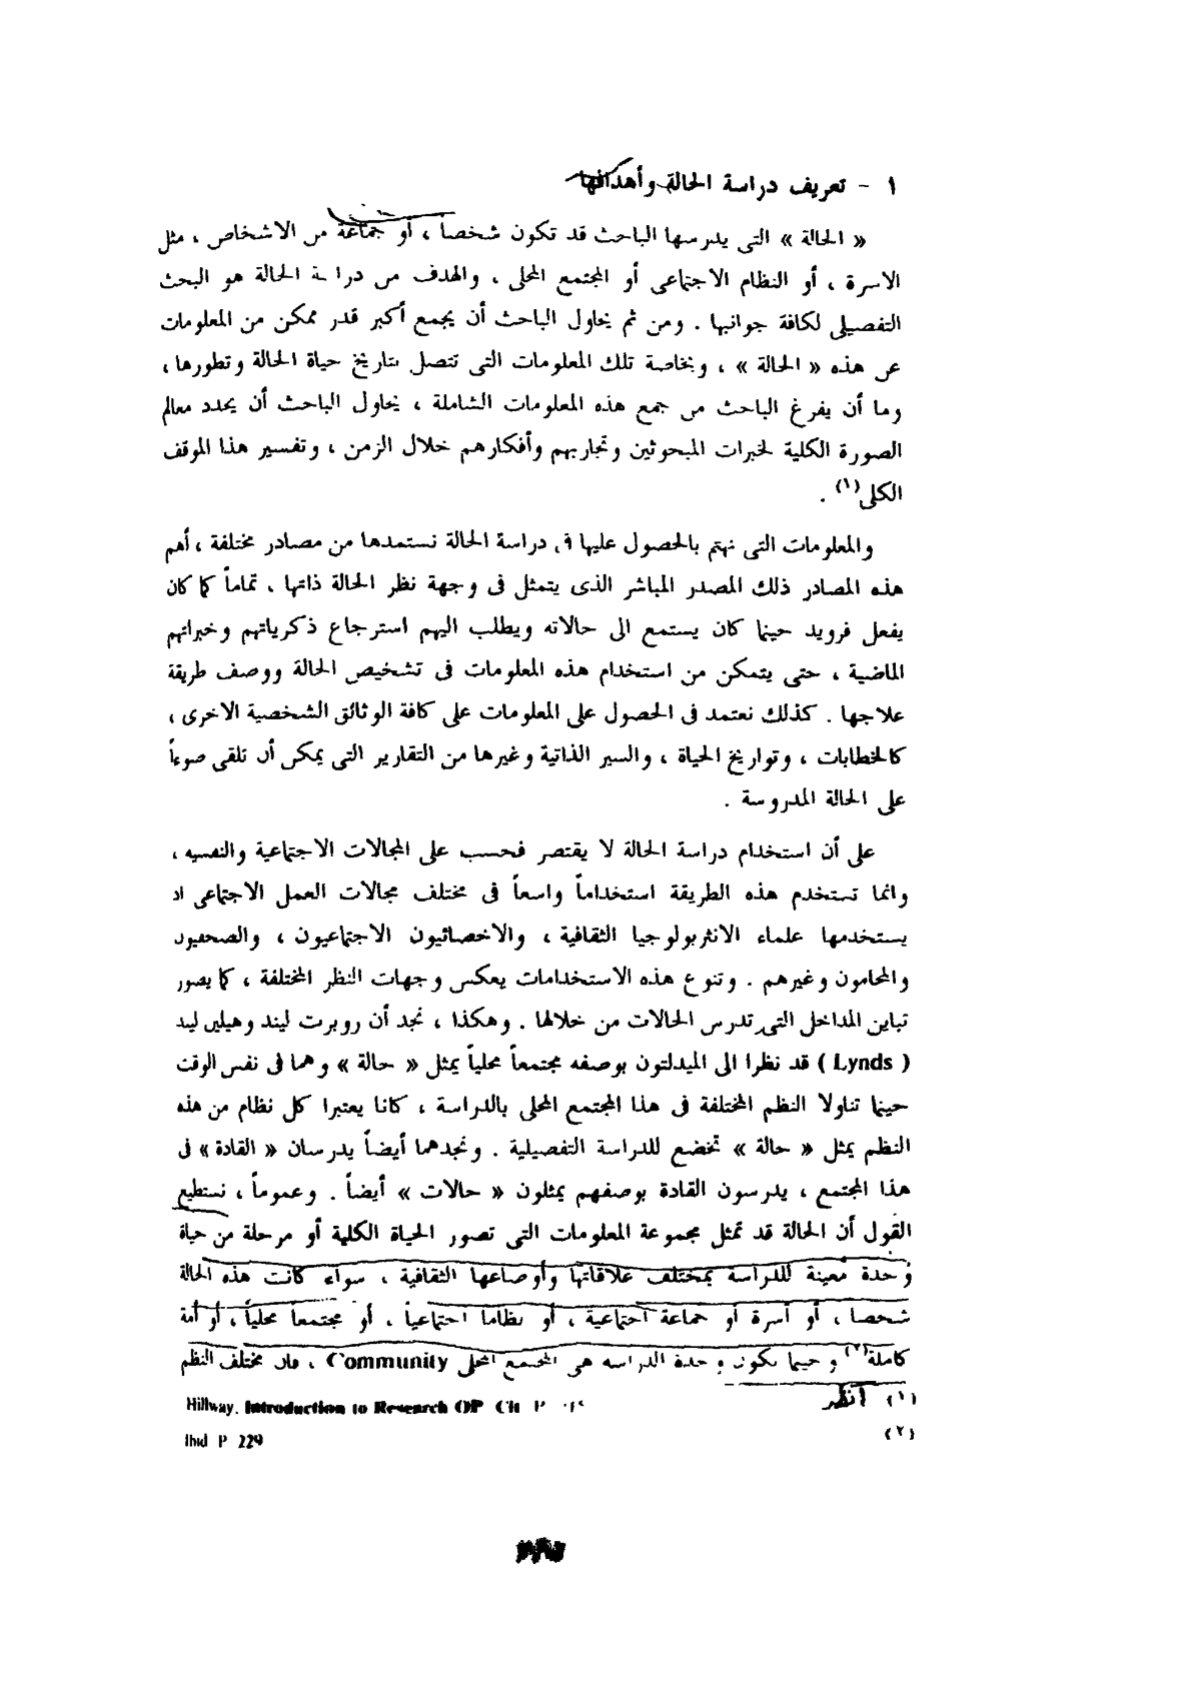 ١ - تعريف دراسة الحالة وأهدافها
« الحالة » التى يدرسها الباحث قد تكون شخصاً ، أو جماعة من الاشخاص ، مثل
الاسرة ، أو النظام الاجتماعى أو المجتمع المحلى ، والهدف من دراسة الحالة هو البحث
التفصيلى لكافة جوانبها . ومن ثم يحاول الباحث أن يجمع أكبر قدر ممكن من المعلومات
عن هذه « الحالة » ، وبخاصة تلك المعلومات التى تتصل بتاريخ حياة الحالة وتطورها ،
وما أن يفرغ الباحث من جمع هذه المعلومات الشاملة ، يحاول الباحث أن يحدد معالم
الصورة الكلية لخبرات المبحوثين وتجاربهم وأفكارهم خلال الزمن ، وتفسير هذا الموقف
الكلى(١) .
والمعلومات التى نهتم بالحصول عليها فى دراسة الحالة نستمدها من مصادر مختلفة ، أهم
هذه المصادر ذلك المصدر المباشر الذى يتمثل فى وجهة نظر الحالة ذاتها ، تماماً كما كان
يفعل فرويد حينما كان يستمع الى حالاته ويطلب اليهم استرجاع ذكرياتهم وخبراتهم
الماضية ، حتى يتمكن من استخدام هذه المعلومات فى تشخيص الحالة ووصف طريقة
علاجها . كذلك نعتمد فى الحصول على المعلومات على كافة الوثائق الشخصية الاخرى ،
كالخطابات ، وتواريخ الحياة ، والسير الذاتية وغيرها من التقارير التى يمكن أن تلقى ضوءاً
على الحالة المدروسة .
على أن استخدام دراسة الحالة لا يقتصر فحسب على المجالات الاجتماعية والنفسيه ،
وانما تستخدم هذه الطريقة استخداماً واسعاً فى مختلف مجالات العمل الاجتماعى اذ
يستخدمها علماء الانثربولوجيا الثقافية ، والاخصائيون الاجتماعيون ، والصحفيون
والمحامون وغيرهم . وتنوع هذه الاستخدامات يعكس وجهات النظر المختلفة ، كما يصور
تباين المداخل التى تدرس الحالات من خلالها . وهكذا ، نجد أن روبرت ليند وهيلين ليند
( Lynds ) قد نظرا الى الميدلتون بوصفه مجتمعاً محلياً يمثل « حالة » وهما فى نفس الوقت
حينما تناولا النظم المختلفة فى هذا المجتمع المحلى بالدراسة ، كانا يعتبرا كل نظام من هذه
النظم يمثل « حالة » تخضع للدراسة التفصيلية . ونجدهما أيضاً يدرسان « القادة » فى
هذا المجتمع ، يدرسون القادة بوصفهم يمثلون « حالات » أيضاً . وعموماً ، نستطيع
القول أن الحالة قد تمثل مجموعة المعلومات التى تصور الحياة الكلية أو مرحلة من حياة
وحدة معينة للدراسة بمختلف علاقاتها وأوضاعها الثقافية ، سواء كانت هذه الحالة
شخصا ، أو أسرة أو جماعة اجتماعية ، أو نظاما اجتماعياً ، أو مجتمعاً محلياً ، أو أمة
كاملة(٢) وحينما تكون وحدة الدراسه هى المجتمع المحلى Community ، فان مختلف النظم
(١) انظر Hillway. Introduction to Research OP Cit P
(٢) Ibid P 229